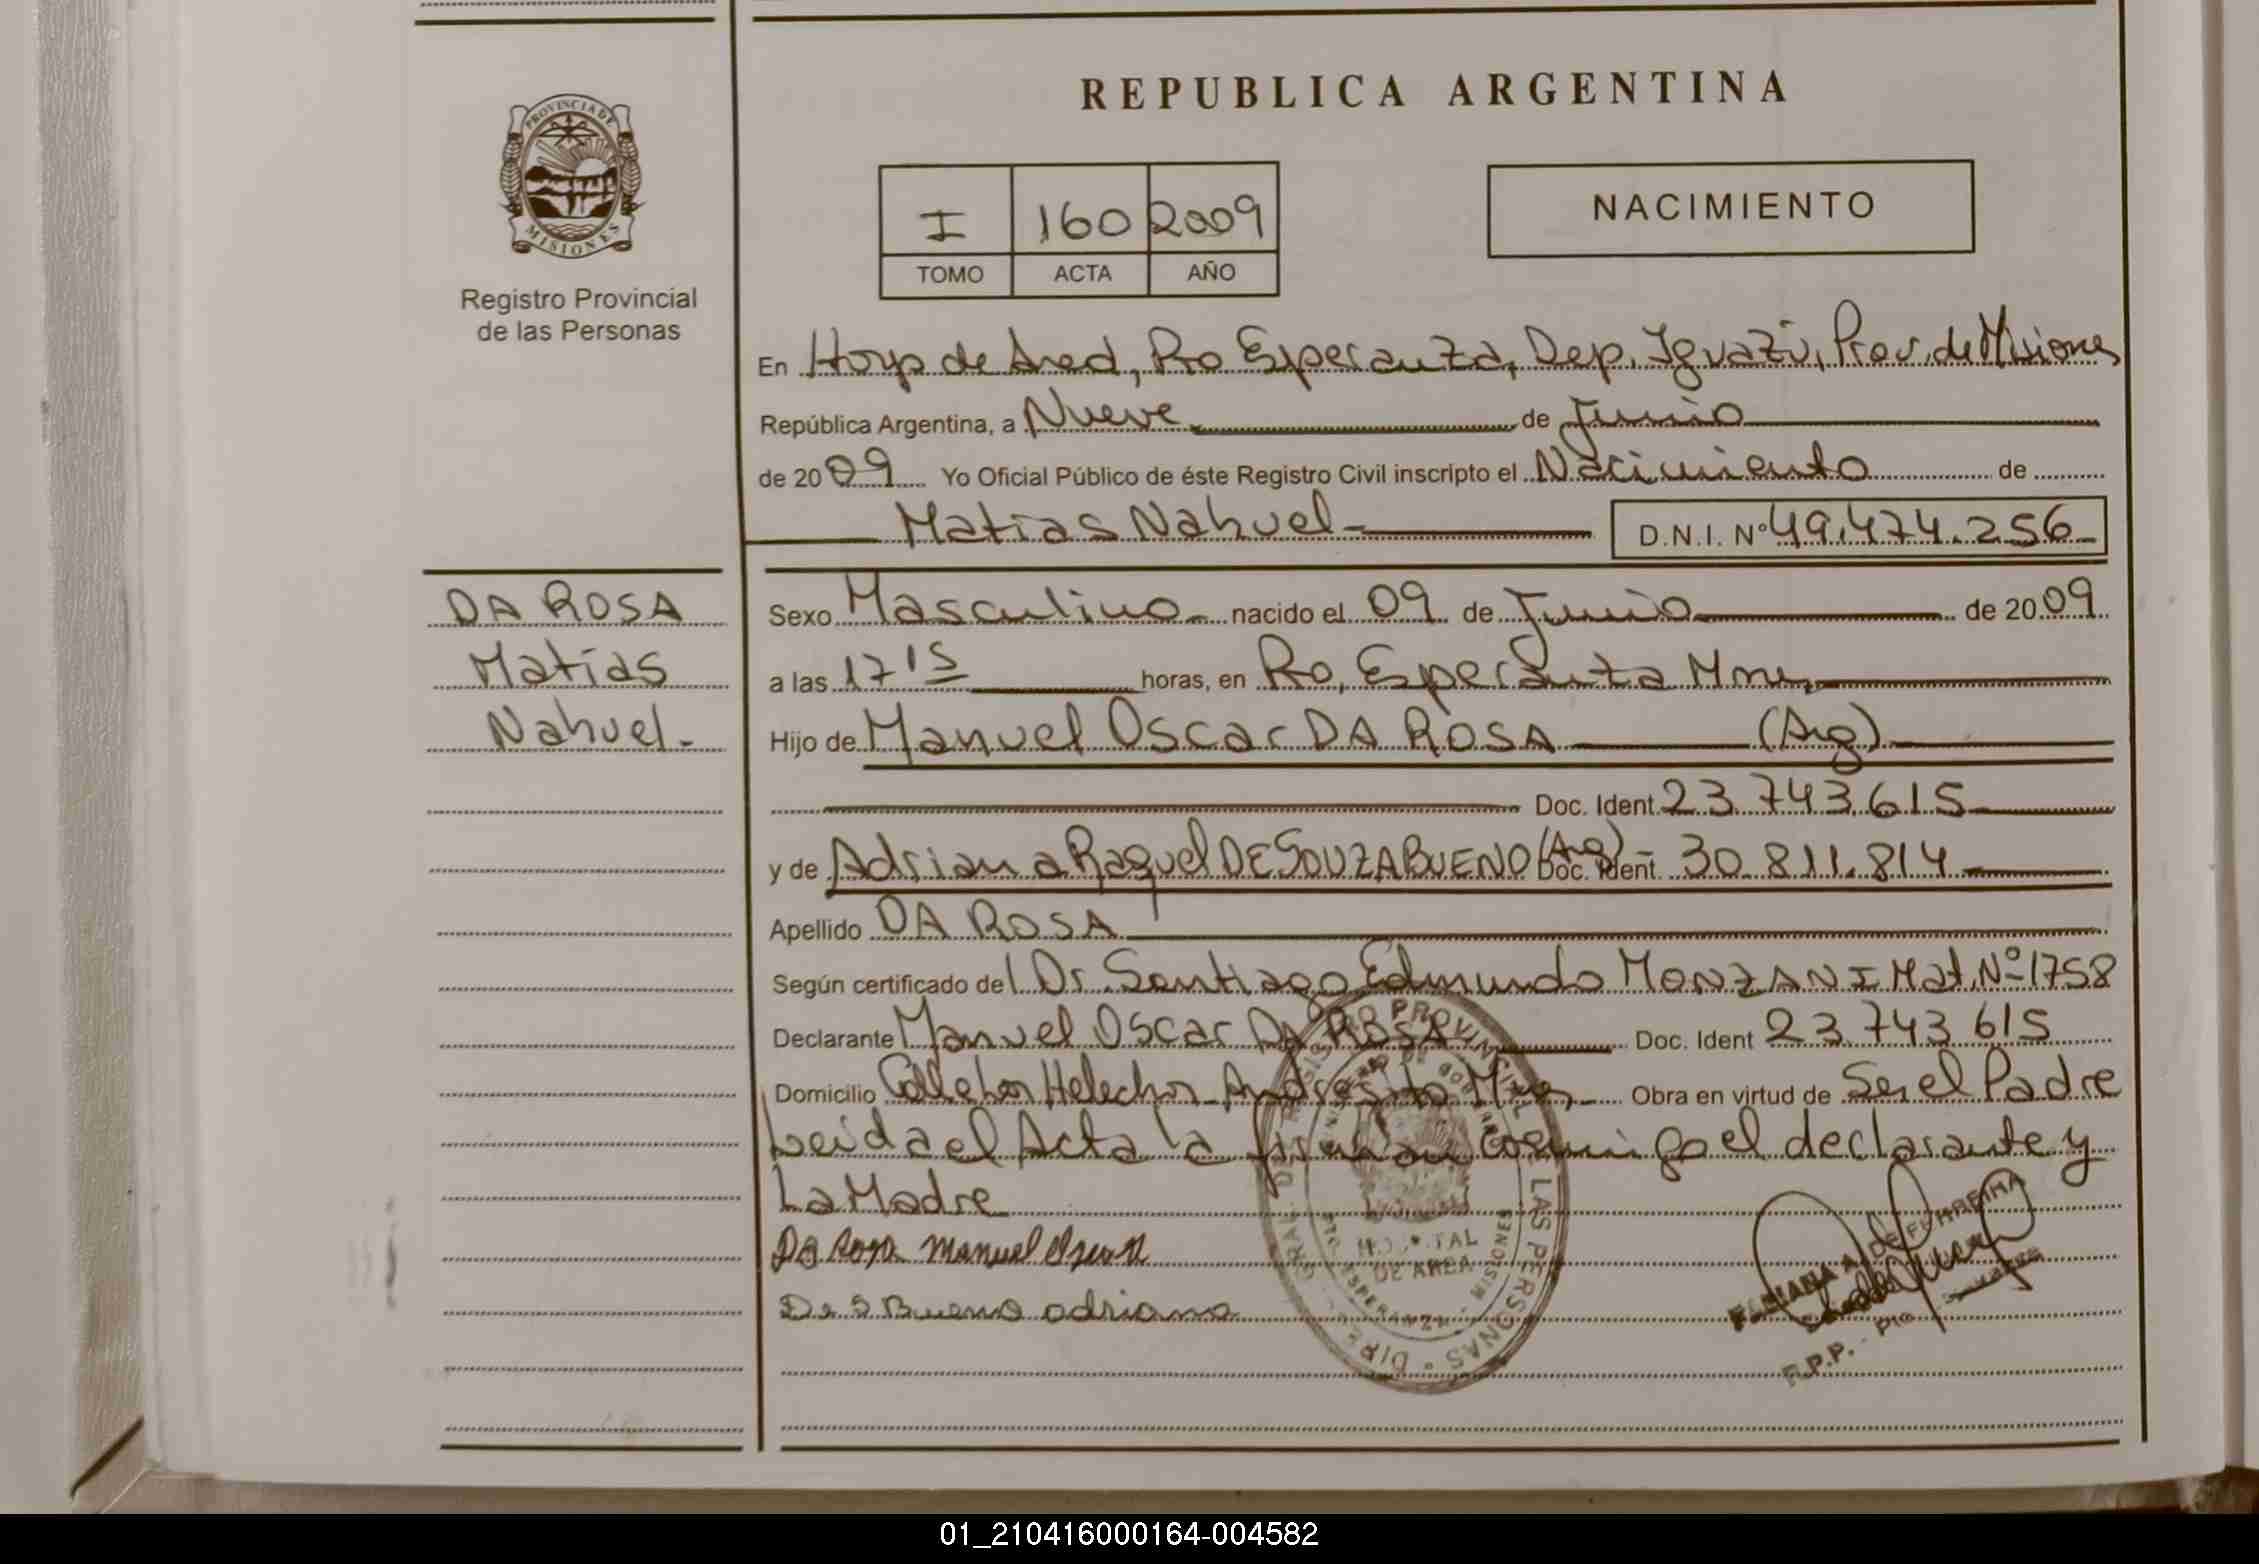 REPUBLICA ARGENTINA
PROVINCIA DE
MISIONES
Registro Provincial
de las Personas
I 160 2009
TOMO ACTA AÑO
NACIMIENTO
En Hosp de Area, Pto Esperanza, Dep. Iguazú, Prov. de Misiones
República Argentina, a Nueve de Junio
de 2009 Yo Oficial Público de éste Registro Civil inscripto el Nacimiento de
Matias Nahuel- D.N.I. Nº 49.474.256
DA ROSA
Matías
Nahuel.-
Sexo Masculino nacido el 09 de Junio de 2009
a las 17 15 horas, en Pto. Esperanza Mnes
Hijo de Manuel Oscar DA ROSA (Arg)
Doc. Ident. 23.743.615
y de Adriana Raquel DE SOUZA BUENO (Arg) Doc. Ident. 30.811.814
Apellido DA ROSA
Según certificado del Dr. Santiago Edmundo MONZANI Mat. Nº 1758
Declarante Manuel Oscar DA ROSA Doc. Ident 23.743.615
Domicilio Calle los Helechos Andresito Mnes Obra en virtud de Ser el Padre
Leida el Acta la firman conmigo el declarante y
La Madre
Da Rosa Manuel Oscar
De S Bueno adriana
REGISTRO PROVINCIAL DE LAS PERSONAS
HOSPITAL
DE AREA
ESPERANZA - MISIONES
FABIANA A. DE FERREIRA
R.P.P.
01_210416000164-004582